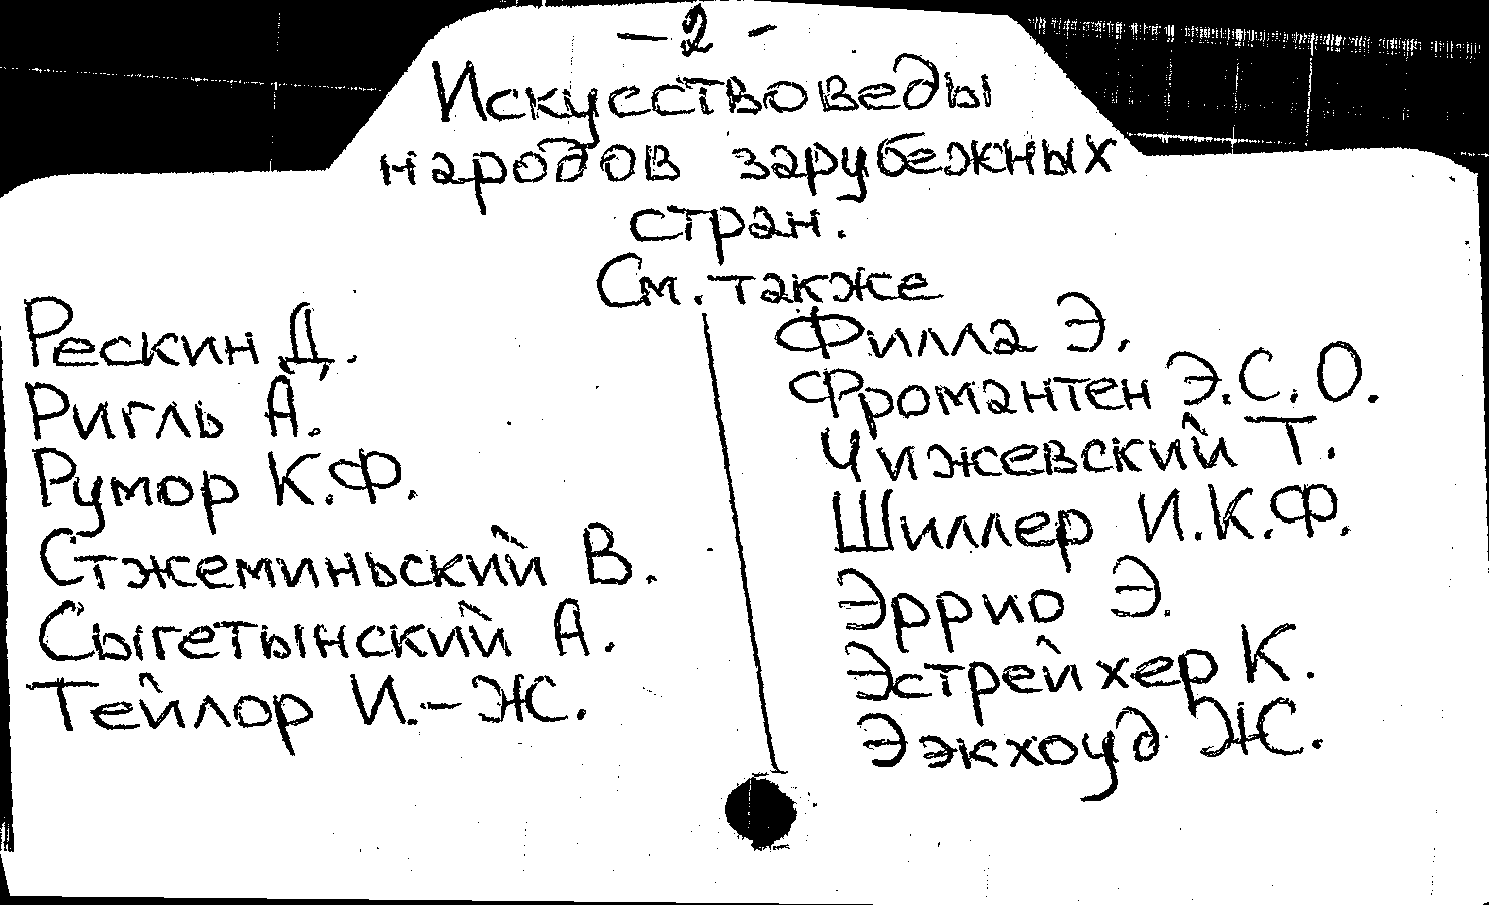 — 2 -
Искусствоведы
народов зарубежных
стран.
См. также
Рескин Д.
Ригль А.
Румор К.Ф.
Стжеминьский В.
Сыгетынский А.
Тейлор И.-Ж.
Филла Э.
Фромантен Э.С.О.
Чижевский Т.
Шиллер И.К.Ф.
Эррио Э.
Эстрейхер К.
Ээкхоуд Ж.